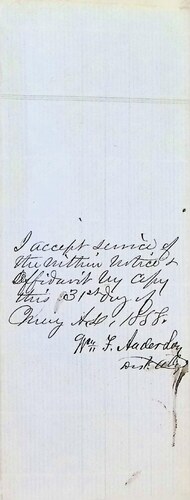 I accept service of
the within notice &
affidavit by copy
this 31st day of
A.D., 1888.
Wm. F. Anderson
Dist. Atty